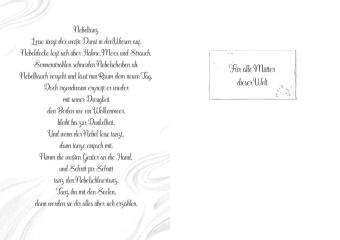 Nebeltanz
Leise steigt der weiße Dunst in den Wiesen auf,
Nebeldecke legt sich über Halme, Moos und Strauch.
Sonnenstrahlen schneiden Nebelscheiben ab.
Nebelhauch vergeht und lässt nun Raum dem neuen Tag.
Doch irgendwann ergießt er wieder
mit seiner Dunstigkeit
den Boden wie ein Wolkenmeer,
bleibt bis zur Dunkelheit.
Und wenn der Nebel leise tanzt,
dann tanze einfach mit.
Nimm die weißen Geister an die Hand,
und Schritt für Schritt
tanz den Nebelschleiertanz.
Tanz ihn mit den Seelen,
dann werden sie dir alles über sich erzählen.
Für alle Mütter
dieser Welt